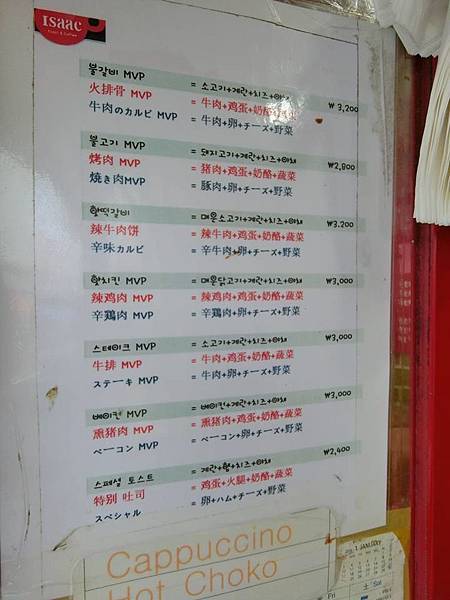 ISaac
불갈비 MVP = 소고기+계란+치즈+야채 ₩3,200
火排骨 MVP = 牛肉+鸡蛋+奶酪+蔬菜
牛肉のカルビ MVP = 牛肉+卵+チーズ+野菜
불고기 MVP = 돼지고기+계란+치즈+야채 ₩2,800
烤肉 MVP = 猪肉+鸡蛋+奶酪+蔬菜
焼き肉MVP = 豚肉+卵+チーズ+野菜
핫떡갈비 = 매운소고기+계란+치즈+야채 ₩3,200
辣牛肉饼 = 辣牛肉+鸡蛋+奶酪+蔬菜
辛味カルビ = 辛牛肉+卵+チーズ+野菜
핫치킨 MVP = 매운닭고기+계란+치즈+야채 ₩3,000
辣鸡肉 MVP = 辣鸡肉+鸡蛋+奶酪+蔬菜
辛鶏肉 MVP = 辛鶏肉+卵+チーズ+野菜
스테이크 MVP = 소고기+계란+치즈+야채 ₩3,000
牛排 MVP = 牛肉+鸡蛋+奶酪+蔬菜
ステーキ MVP = 牛肉+卵+チーズ+野菜
베이컨 MVP = 베이컨+계란+치즈+야채 ₩3,000
熏猪肉 MVP = 熏猪肉+鸡蛋+奶酪+蔬菜
ベーコン MVP = ベーコン+卵+チーズ+野菜
스페셜 토스트 = 계란+햄+치즈+야채 ₩2,400
特别 吐司 = 鸡蛋+火腿+奶酪+蔬菜
スペシャル = 卵+ハム+チーズ+野菜
Cappuccino
Hot Choko